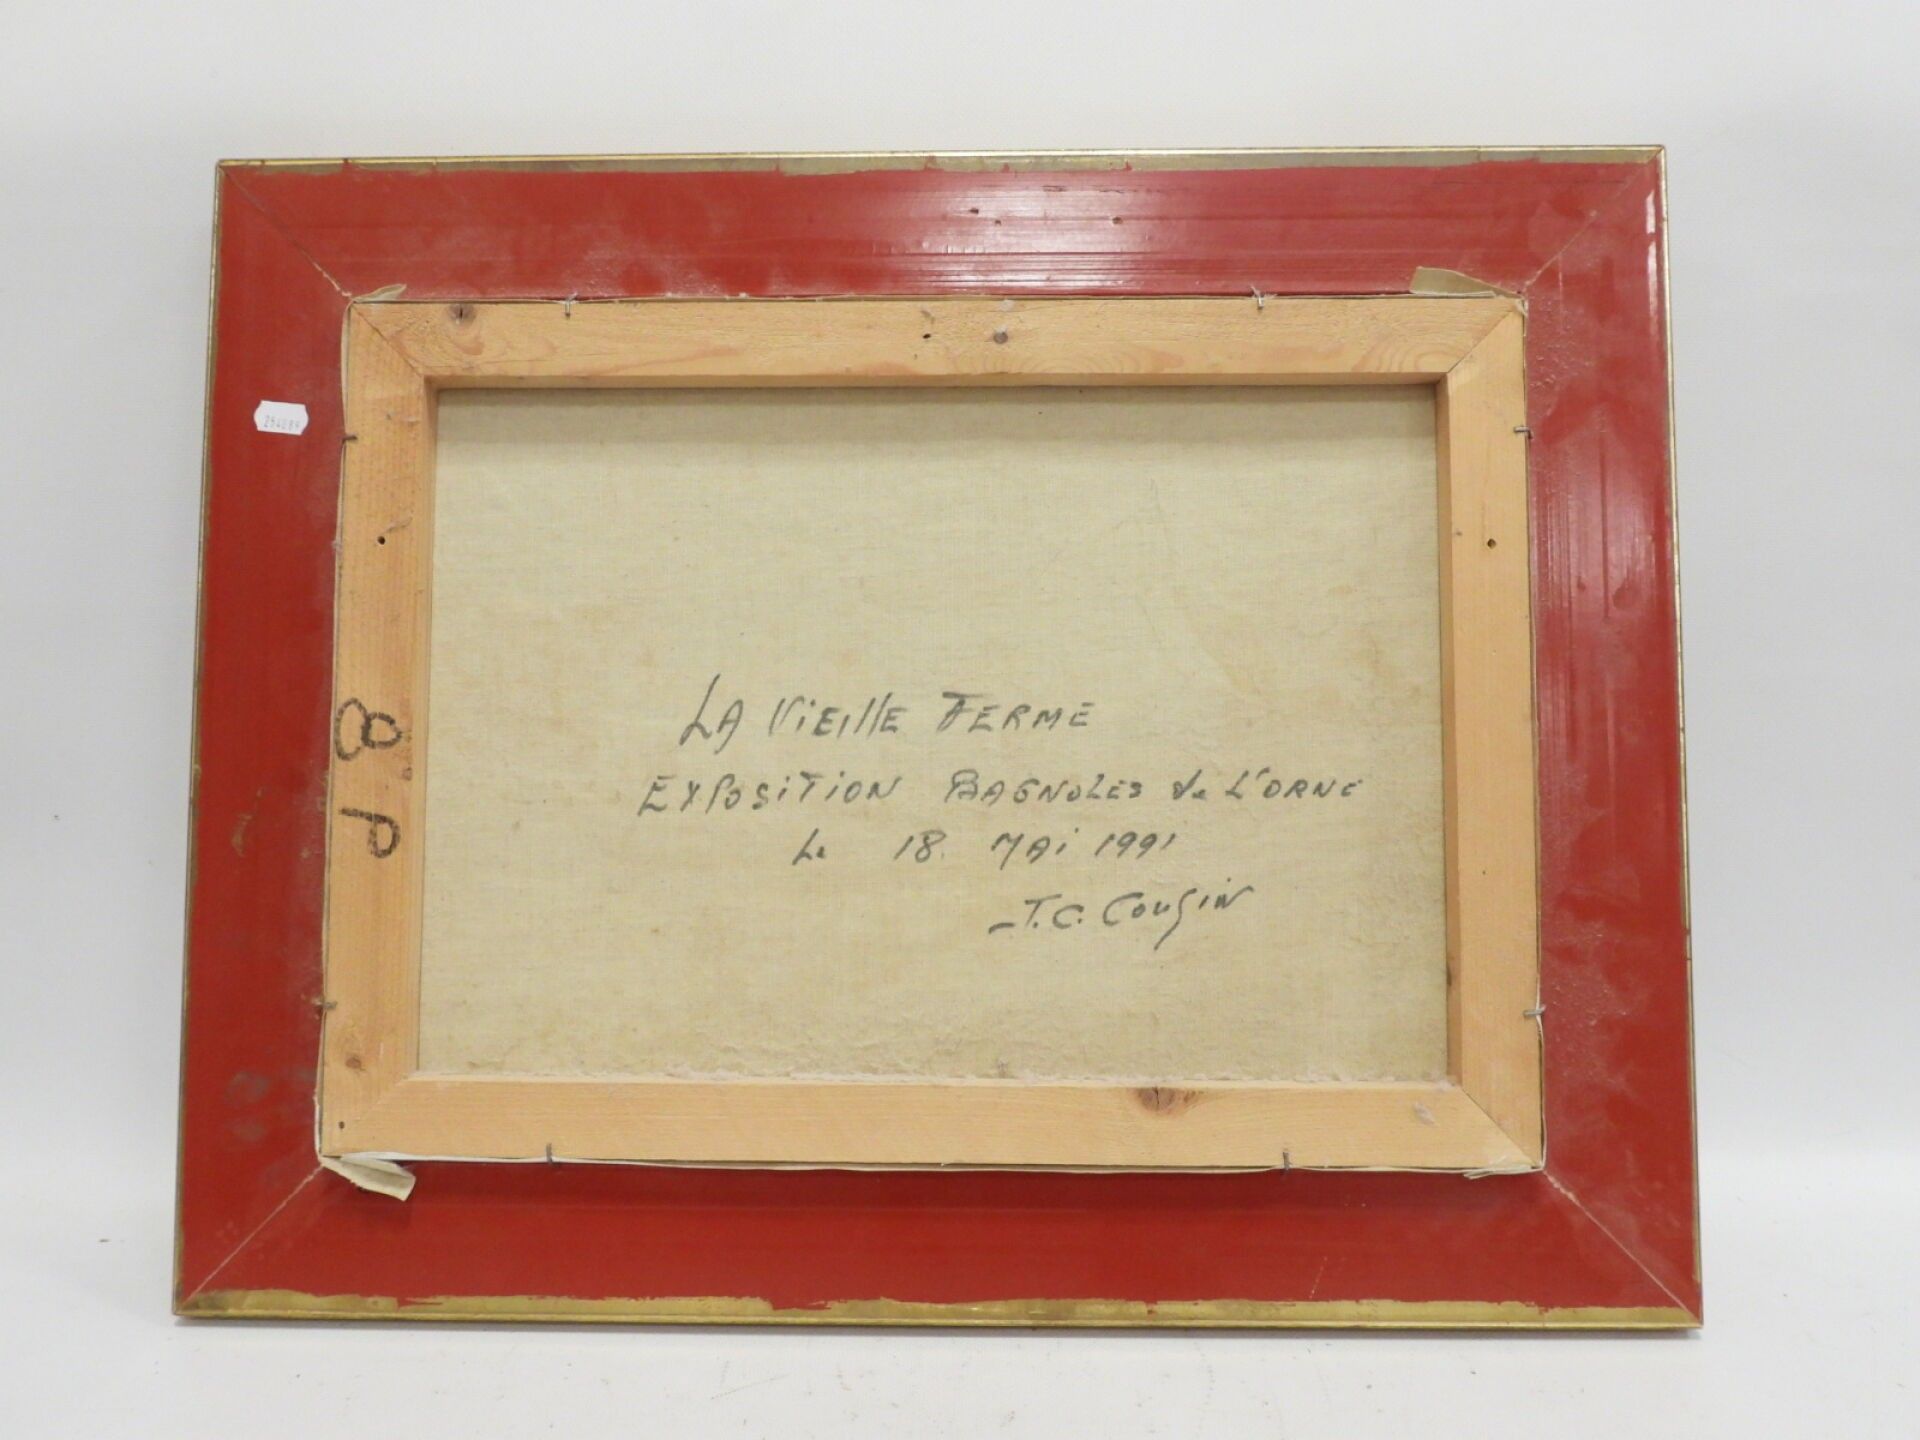 LA VIEILLE FERME
EXPOSITION BAGNOLES de L'ORNE
Le 18 MAI 1991
J.C. Cousin
8 P